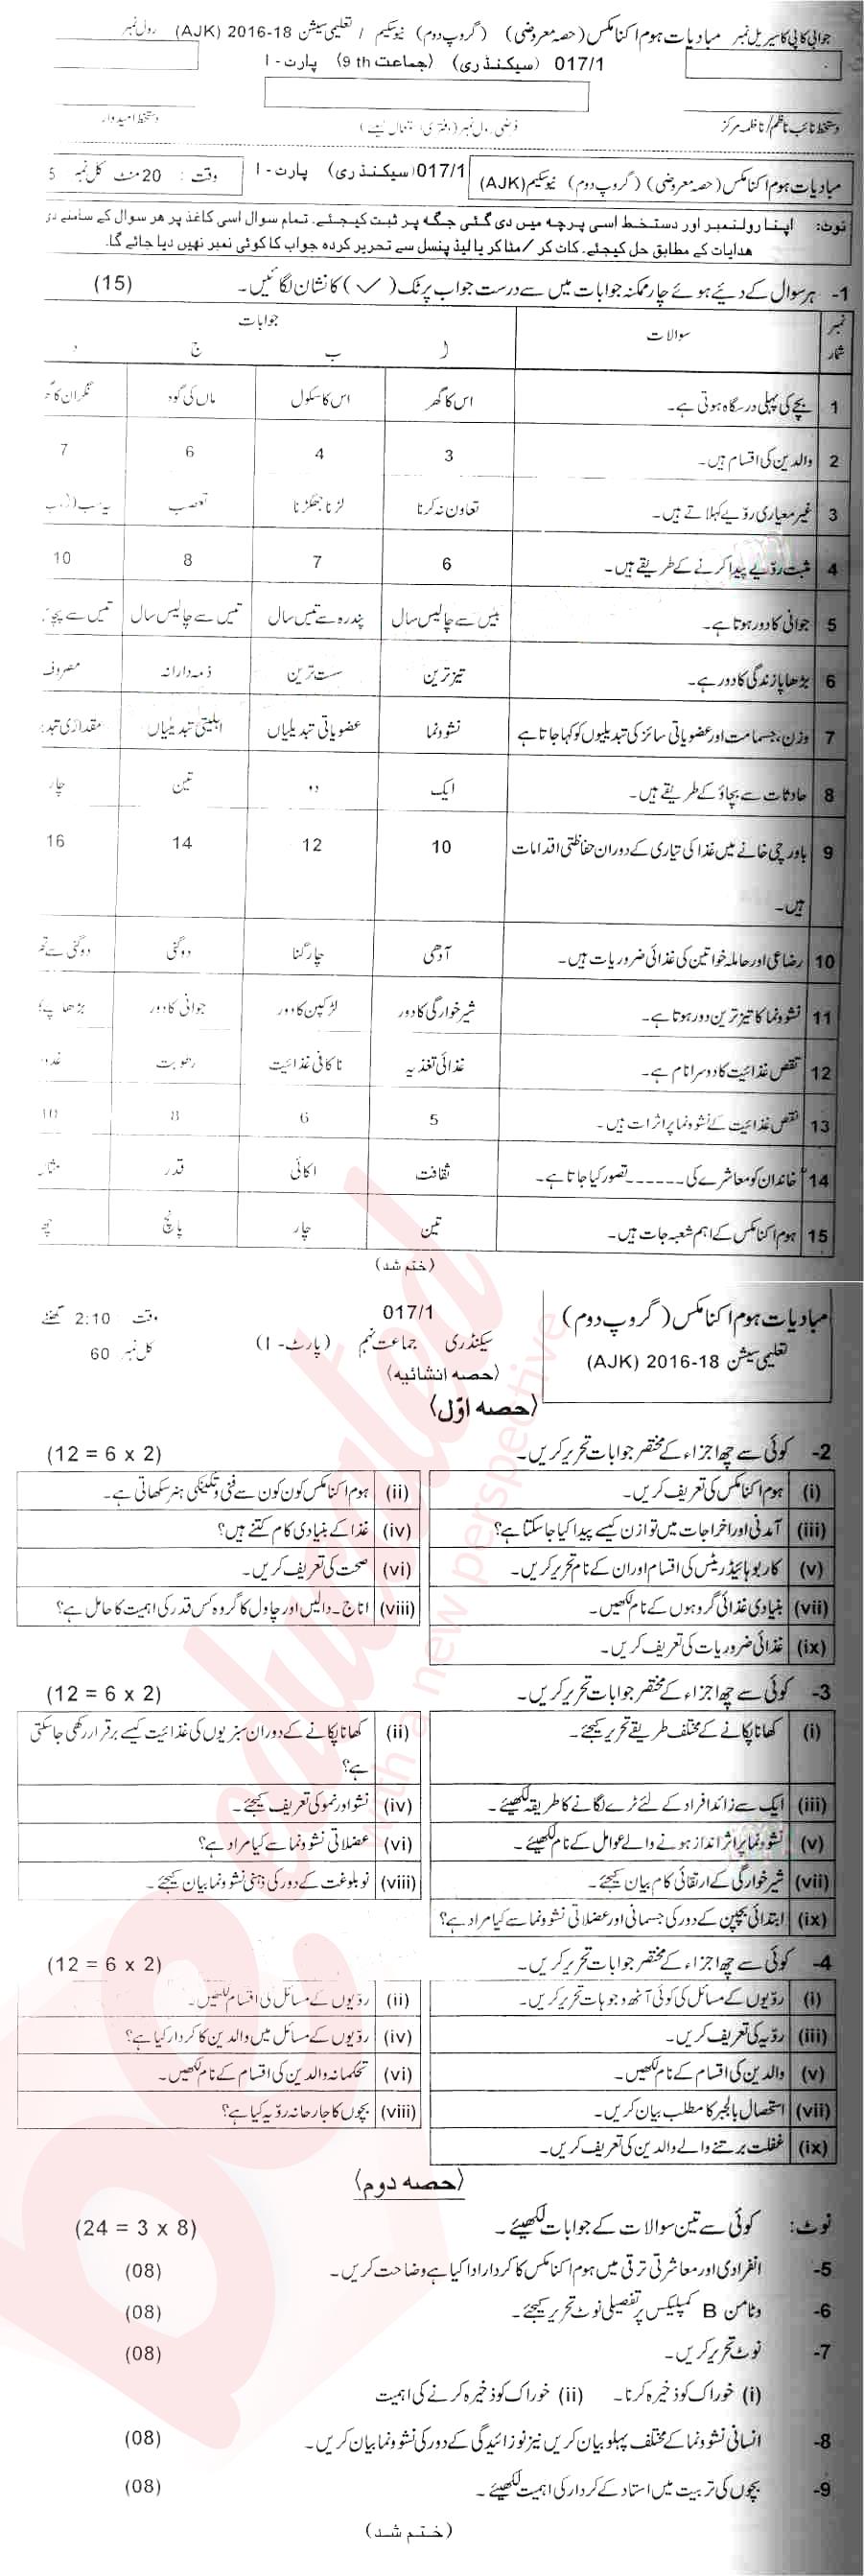 جوابی کاپی کا سیریل نمبر مبادیات ہوم اکنامکس (حصہ معروضی) (گروپ دوم) نیو سکیم / تعلیمی سیشن 18-2016 (AJK) رول نمبر
017/1 (سیکنڈری) (جماعت 9th) پارٹ - I
دستخط نائب ناظم/ناظمہ مرکز فرضی رول نمبر (دفتری استعمال کیلئے) دستخط امیدوار
مبادیات ہوم اکنامکس (حصہ معروضی) (گروپ دوم) نیو سکیم (AJK) 017/1 (سیکنڈری) پارٹ - I وقت : 20 منٹ کل نمبر 5
نوٹ: اپنا رولنمبر اور دستخط اسی پرچہ میں دی گئی جگہ پر ثبت کیجئے۔ تمام سوال اسی کاغذ پر ہر سوال کے سامنے دی
ہدایات کے مطابق حل کیجئے۔ کاٹ کر /مٹا کر یا لیڈ پنسل سے تحریر کردہ جواب کا کوئی نمبر نہیں دیا جائے گا۔
1- ہر سوال کے دئیے ہوئے چار ممکنہ جوابات میں سے درست جواب پر ٹک (✓) کا نشان لگائیں۔ (15)
نمبر شمار سوالات جوابات
ا ب ج د
1 بچے کی پہلی درسگاہ ہوتی ہے۔ اس کا گھر اس کا سکول ماں کی گود نگران کا
2 والدین کی اقسام ہیں۔ 3 4 6 7
3 غیر معیاری رویے کہلاتے ہیں۔ تعاون نہ کرنا لڑنا جھگڑنا تعصب یہ سب
4 مثبت رویے پیدا کرنے کے طریقے ہیں۔ 6 7 8 10
5 جوانی کا دور ہوتا ہے۔ بیس سے چالیس سال پندرہ سے تیس سال تیس سے چالیس سال تیس سے
6 بڑھاپا زندگی کا دور ہے۔ تیز ترین سست ترین ذمہ دارانہ مصروف
7 وزن، جسامت اور عضویاتی سائز کی تبدیلیوں کو کہا جاتا ہے نشوونما عضویاتی تبدیلیاں اہلیتی تبدیلیاں مقداری
8 حادثات سے بچاؤ کے طریقے ہیں۔ ایک دو تین چار
9 باورچی خانے میں غذا کی تیاری کے دوران حفاظتی اقدامات 10 12 14 16
ہیں۔
10 رضاعی اور حاملہ خواتین کی غذائی ضروریات ہیں۔ آدھی چار گنا دوگنی دوگنی سے
11 نشوونما کا تیز ترین دور ہوتا ہے۔ شیر خوارگی کا دور لڑکپن کا دور جوانی کا دور بڑھاپے
12 نقص غذائیت کا دوسرا نام ہے۔ غذائی تغذیہ ناکافی غذائیت رطوبت
13 نقص غذائیت کے نشوونما پر اثرات ہیں۔ 5 6 8 10
14 خاندان کو معاشرے کی ------ تصور کیا جاتا ہے۔ ثقافت اکائی قدر
15 ہوم اکنامکس کے اہم شعبہ جات ہیں۔ تین چار پانچ چھ
(ختم شد)
مبادیات ہوم اکنامکس (گروپ دوم) 017/1 وقت 2:10 گھنٹے
تعلیمی سیشن 18-2016 (AJK) سیکنڈری جماعت نہم (پارٹ - I) کل نمبر 60
(حصہ انشائیہ)
(حصہ اوّل)
2- کوئی سے چھ اجزاء کے مختصر جوابات تحریر کریں۔ (12 = 6 x 2)
(i) ہوم اکنامکس کی تعریف کریں۔ (ii) ہوم اکنامکس کون کون سے فنی و تکنیکی ہنر سکھاتی ہے۔
(iii) آمدنی اور اخراجات میں توازن کیسے پیدا کیا جا سکتا ہے؟ (iv) غذا کے بنیادی کام کتنے ہیں؟
(v) کاربوہائیڈریٹس کی اقسام اور ان کے نام تحریر کریں۔ (vi) صحت کی تعریف کریں۔
(vii) بنیادی غذائی گروہوں کے نام لکھیں۔ (viii) اناج ۔ دالیں اور چاول کا گروہ کس قدر کی اہمیت کا حامل ہے؟
(ix) غذائی ضروریات کی تعریف کریں۔
3- کوئی سے چھ اجزاء کے مختصر جوابات تحریر کریں۔ (12 = 6 x 2)
(i) کھانا پکانے کے مختلف طریقے تحریر کیجئے۔ (ii) کھانا پکانے کے دوران سبزیوں کی غذائیت کیسے برقرار رکھی جا سکتی
ہے؟
(iii) ایک سے زائد افراد کے لئے ٹرے لگانے کا طریقہ لکھیئے۔ (iv) نشو اور نمو کی تعریف کیجئے۔
(v) نشوونما پر اثر انداز ہونے والے عوامل کے نام لکھیئے۔ (vi) عضلاتی نشوونما سے کیا مراد ہے؟
(vii) شیر خوارگی کے ارتقائی کام بیان کیجئے۔ (viii) نوبلوغت کے دور کی ذہنی نشوونما بیان کیجئے۔
(ix) ابتدائی بچپن کے دور کی جسمانی اور عضلاتی نشوونما سے کیا مراد ہے؟
4- کوئی سے چھ اجزاء کے مختصر جوابات تحریر کریں۔ (12 = 6 x 2)
(i) رویوں کے مسائل کی کوئی آٹھ وجوہات تحریر کریں۔ (ii) رویوں کے مسائل کی اقسام لکھیں۔
(iii) رویہ کی تعریف کریں۔ (iv) رویوں کے مسائل میں والدین کا کردار کیا ہے؟
(v) والدین کی اقسام کے نام لکھیں۔ (vi) تحکمانہ والدین کی اقسام کے نام لکھیں۔
(vii) استحصال بالجبر کا مطلب بیان کریں۔ (viii) بچوں کا جارحانہ رویہ کیا ہے؟
(ix) غفلت برتنے والے والدین کی تعریف کریں۔
(حصہ دوم)
نوٹ: کوئی سے تین سوالات کے جوابات لکھیئے۔ (24 = 3 x 8)
5- انفرادی اور معاشرتی ترقی میں ہوم اکنامکس کا کردار ادا کیا ہے وضاحت کریں۔ (08)
6- وٹامن B کمپلیکس پر تفصیلی نوٹ تحریر کیجئے۔ (08)
7- نوٹ تحریر کریں۔ (08)
(i) خوراک کو ذخیرہ کرنا۔ (ii) خوراک کو ذخیرہ کرنے کی اہمیت
8- انسانی نشوونما کے مختلف پہلو بیان کریں نیز نوزائیدگی کے دور کی نشوونما بیان کریں۔ (08)
9- بچوں کی تربیت میں استاد کے کردار کی اہمیت لکھیئے۔ (08)
(ختم شد)
beeducated
with a new perspective